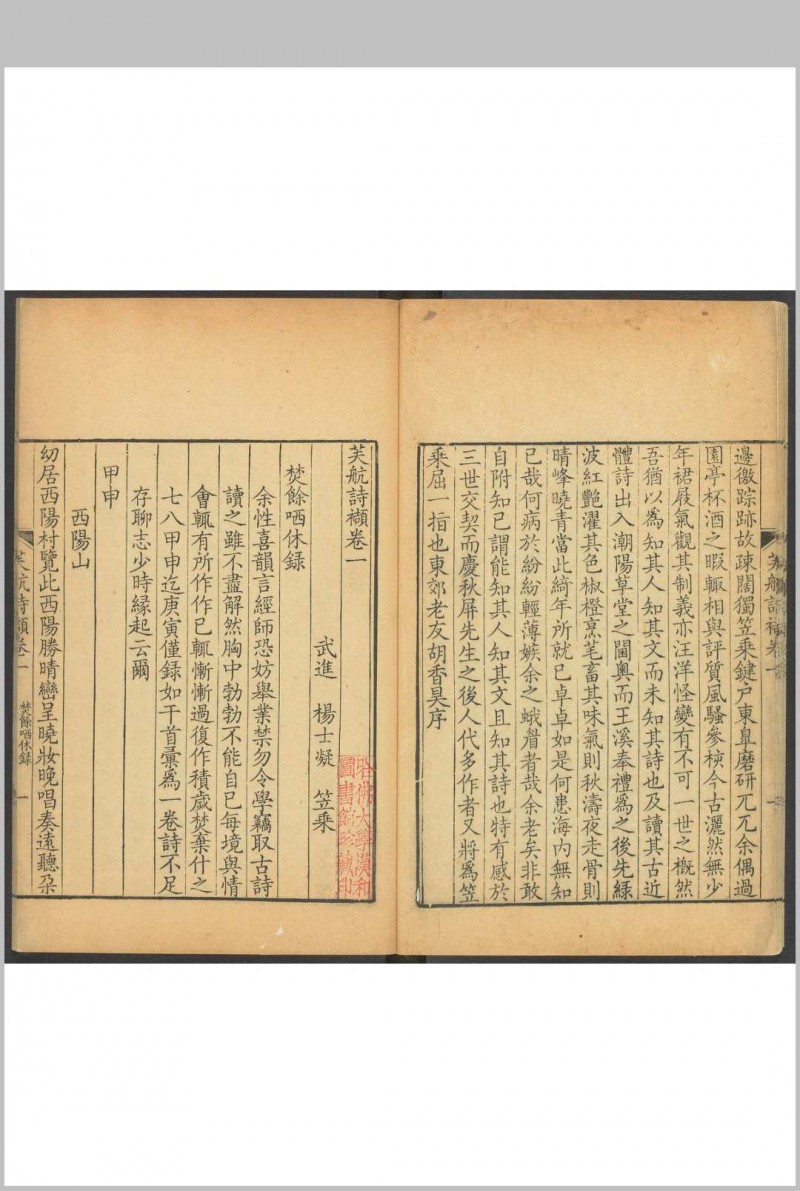 邊徼踪跡故疎闊獨笠乘鍵戶東臯磨研兀兀余偶過
園亭杯酒之暇輒相與評質風騷參挍今古灑然無少
年裙屐氣觀其制義亦汪洋怪變有不可一世之概然
吾猶以為知其人知其文而未知其詩也及讀其古近
體詩出入潮陽草堂之閫奧而玉溪奉禮為之後先綠
波紅艷濯其色椒橙烹芼畜其味氣則秋濤夜走骨則
晴峰曉青當此綺年所就已卓卓如是何患海內無知
已哉何病於紛紛輕薄嫉余之蛾眉者哉余老矣非敢
自附知已謂能知其人知其文且知其詩也特有感於
三世交契而慶秋屏先生之後人代多作者又將為笠
乘屈一指也東郊老友胡香昊序
芙航詩襭卷一
武進　楊士凝　笠乘
焚餘哂休録
余性喜韻言經師恐妨舉業禁勿令學竊取古詩
讀之雖不盡解然胸中勃勃不能自已每境與情
會輒有所作作已輒慚慚過復作積歲焚棄什之
七八甲申迄庚寅僅録如干首彙為一卷詩不足
存聊志少時緣起云爾
甲申
西陽山
幼居西陽村覽此西陽勝晴巒呈曉妝晚唱奏遠聽朶
芙航詩襭卷一
焚餘哂休録
一
哈佛大學漢和
圖書館珍藏印